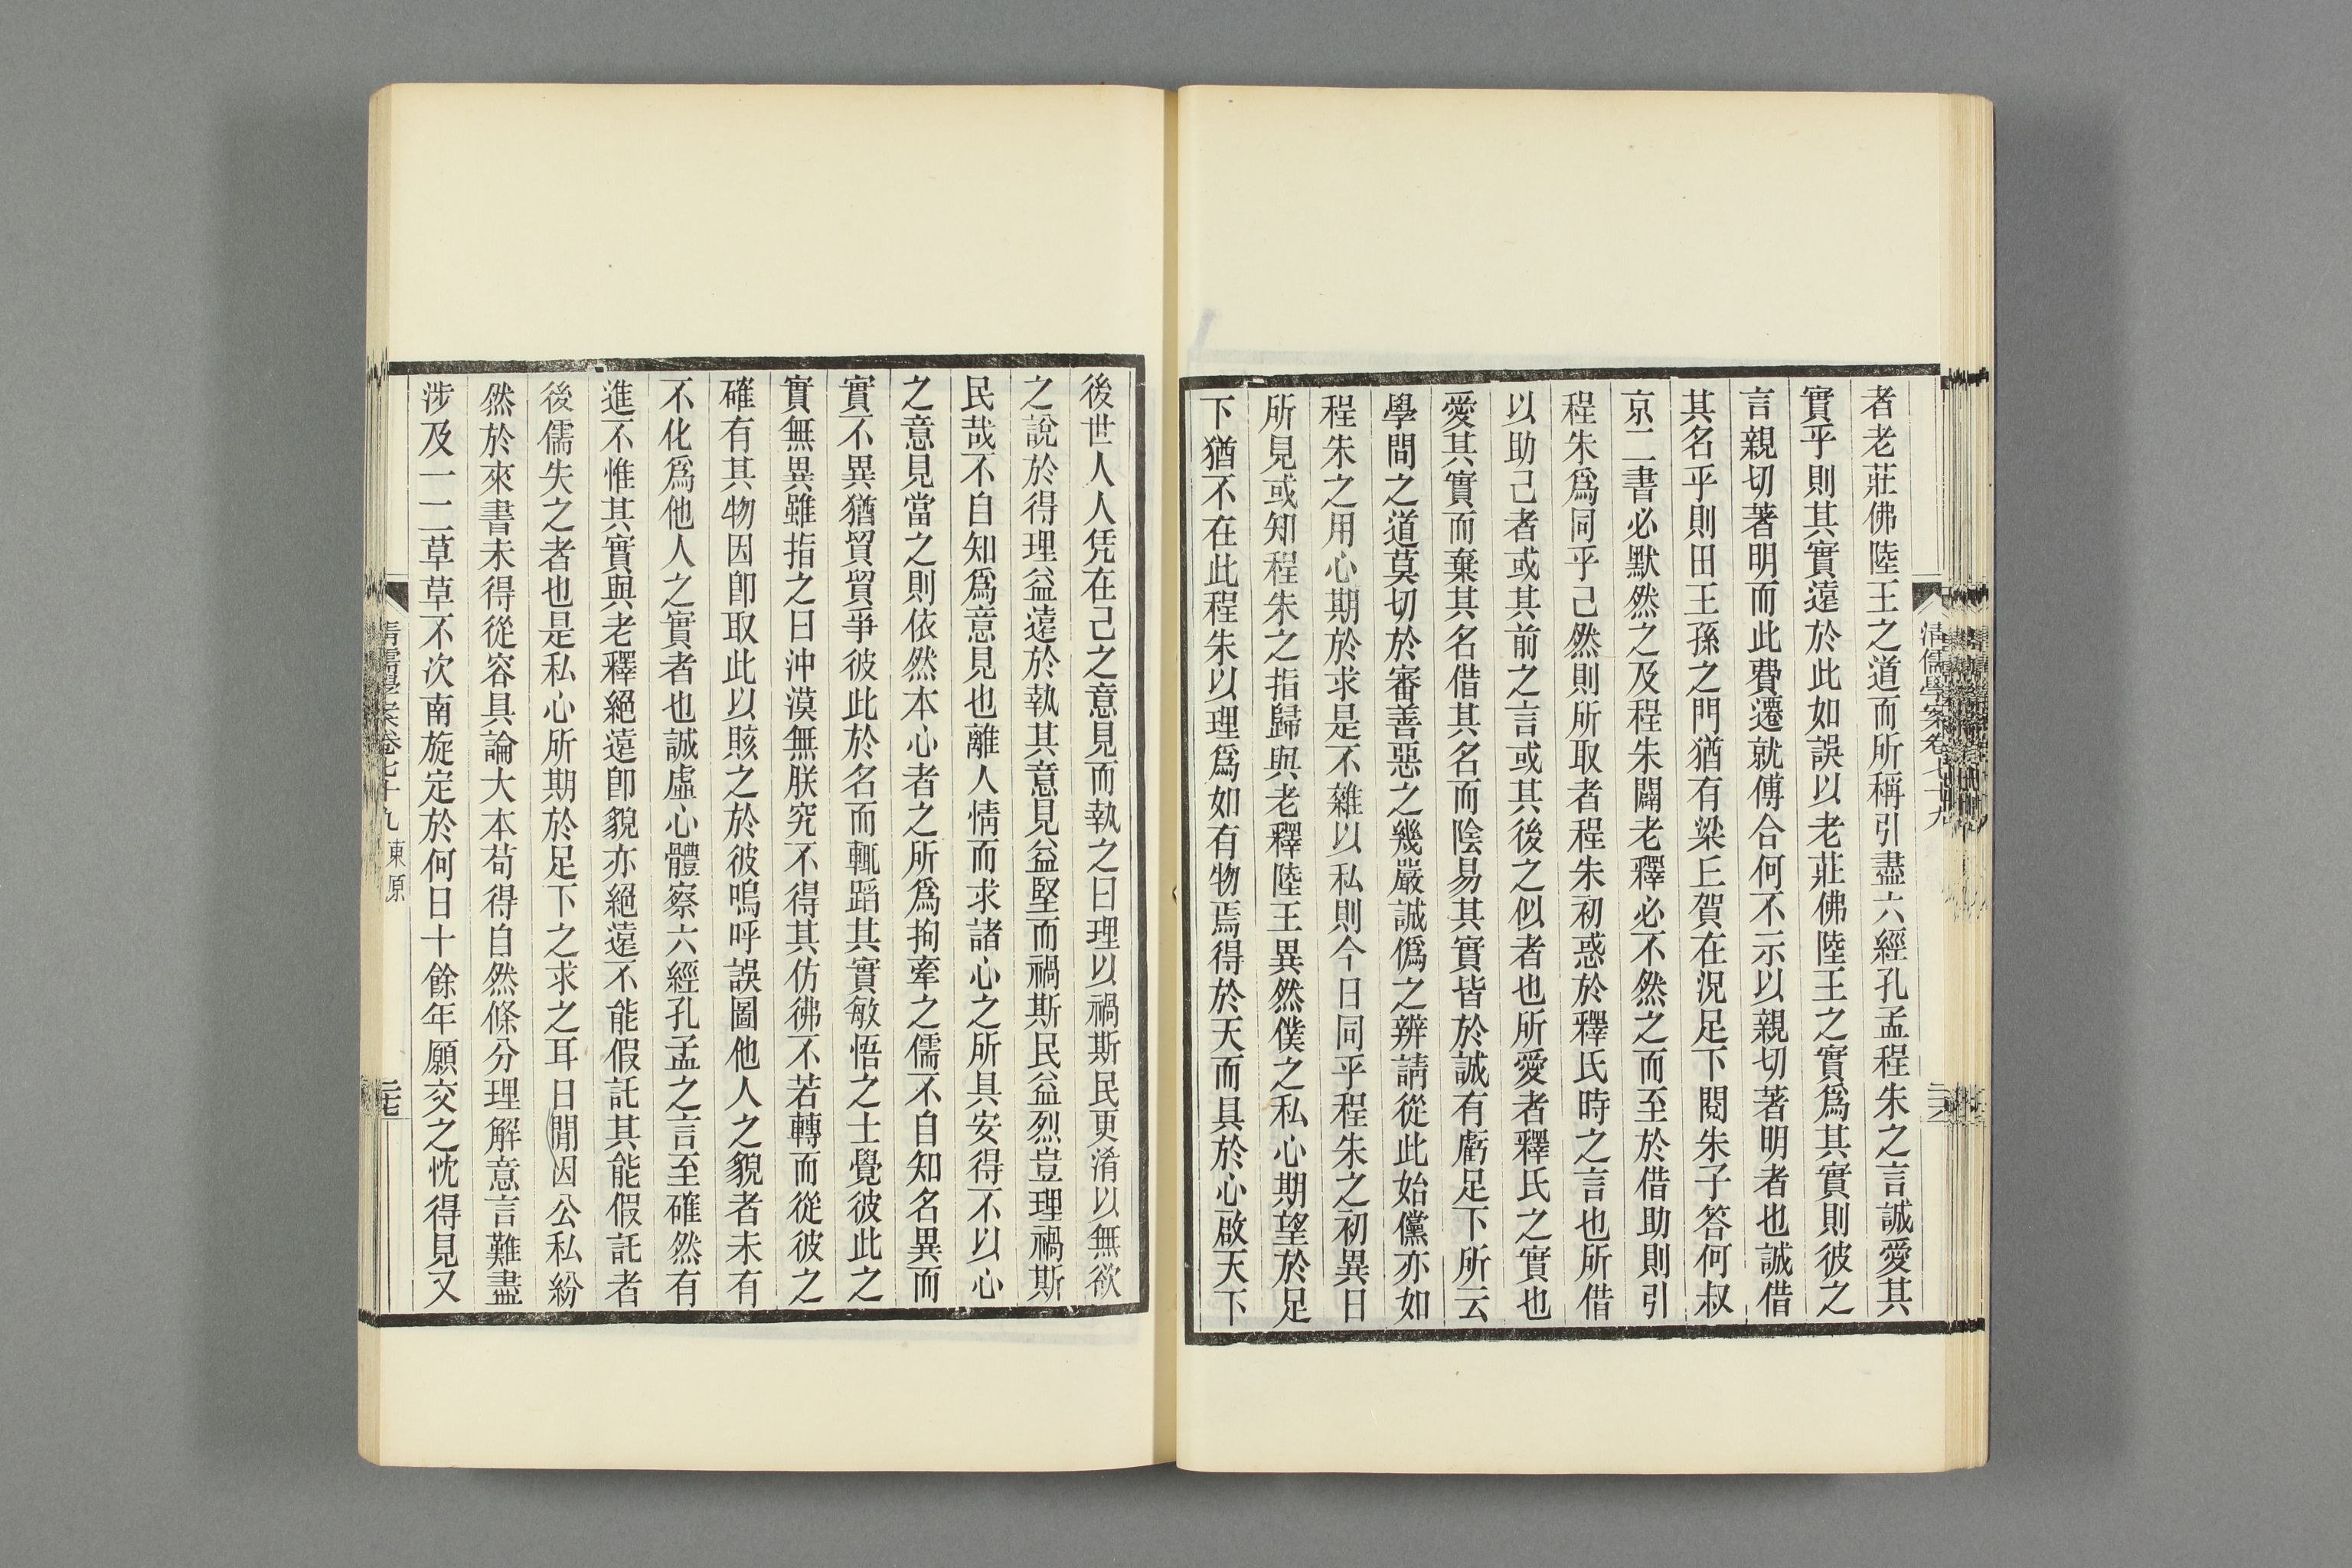 者老莊佛陸王之道而所稱引盡六經孔孟程朱之言誠愛其
實乎則其實遠於此如誤以老莊佛陸王之實爲其實則彼之
言親切著明而此費遷就傅合何不示以親切著明者也誠借
其名乎則田王孫之門猶有梁丘賀在況足下閱朱子答何叔
京二書必默然之及程朱闢老釋必不然之而至於借助則引
程朱爲同乎己然則所取者程朱初惑於釋氏時之言也所借
以助己者或其前之言或其後之似者也所愛者釋氏之實也
愛其實而棄其名借其名而陰易其實皆於誠有虧足下所云
學問之道莫切於審善惡之幾嚴誠僞之辨請從此始儻亦如
程朱之用心期於求是不雜以私則今日同乎程朱之初異日
所見或知程朱之指歸與老釋陸王異然僕之私心期望於足
下猶不在此程朱以理爲如有物焉得於天而具於心啟天下
清儒學案卷七十九
後世人人凭在己之意見而執之曰理以禍斯民更淆以無欲
之說於得理益遠於執其意見益堅而禍斯民益烈豈理禍斯
民哉不自知爲意見也離人情而求諸心之所具安得不以心
之意見當之則依然本心者之所爲拘牽之儒不自知名異而
實不異猶貿貿爭彼此於名而輒蹈其實敏悟之士覺彼此之
實無異雖指之曰沖漠無朕究不得其仿彿不若轉而從彼之
確有其物因卽取此以賅之於彼嗚呼誤圖他人之貌者未有
不化爲他人之實者也誠虛心體察六經孔孟之言至確然有
進不惟其實與老釋絕遠卽貌亦絕遠不能假託其能假託者
後儒失之者也是私心所期於足下之求之耳日間因公私紛
然於來書未得從容具論大本苟得自然條分理解意言難盡
涉及一二草草不次南旋定於何日十餘年願交之忱得見又
清儒學案卷七十九 東原
二七